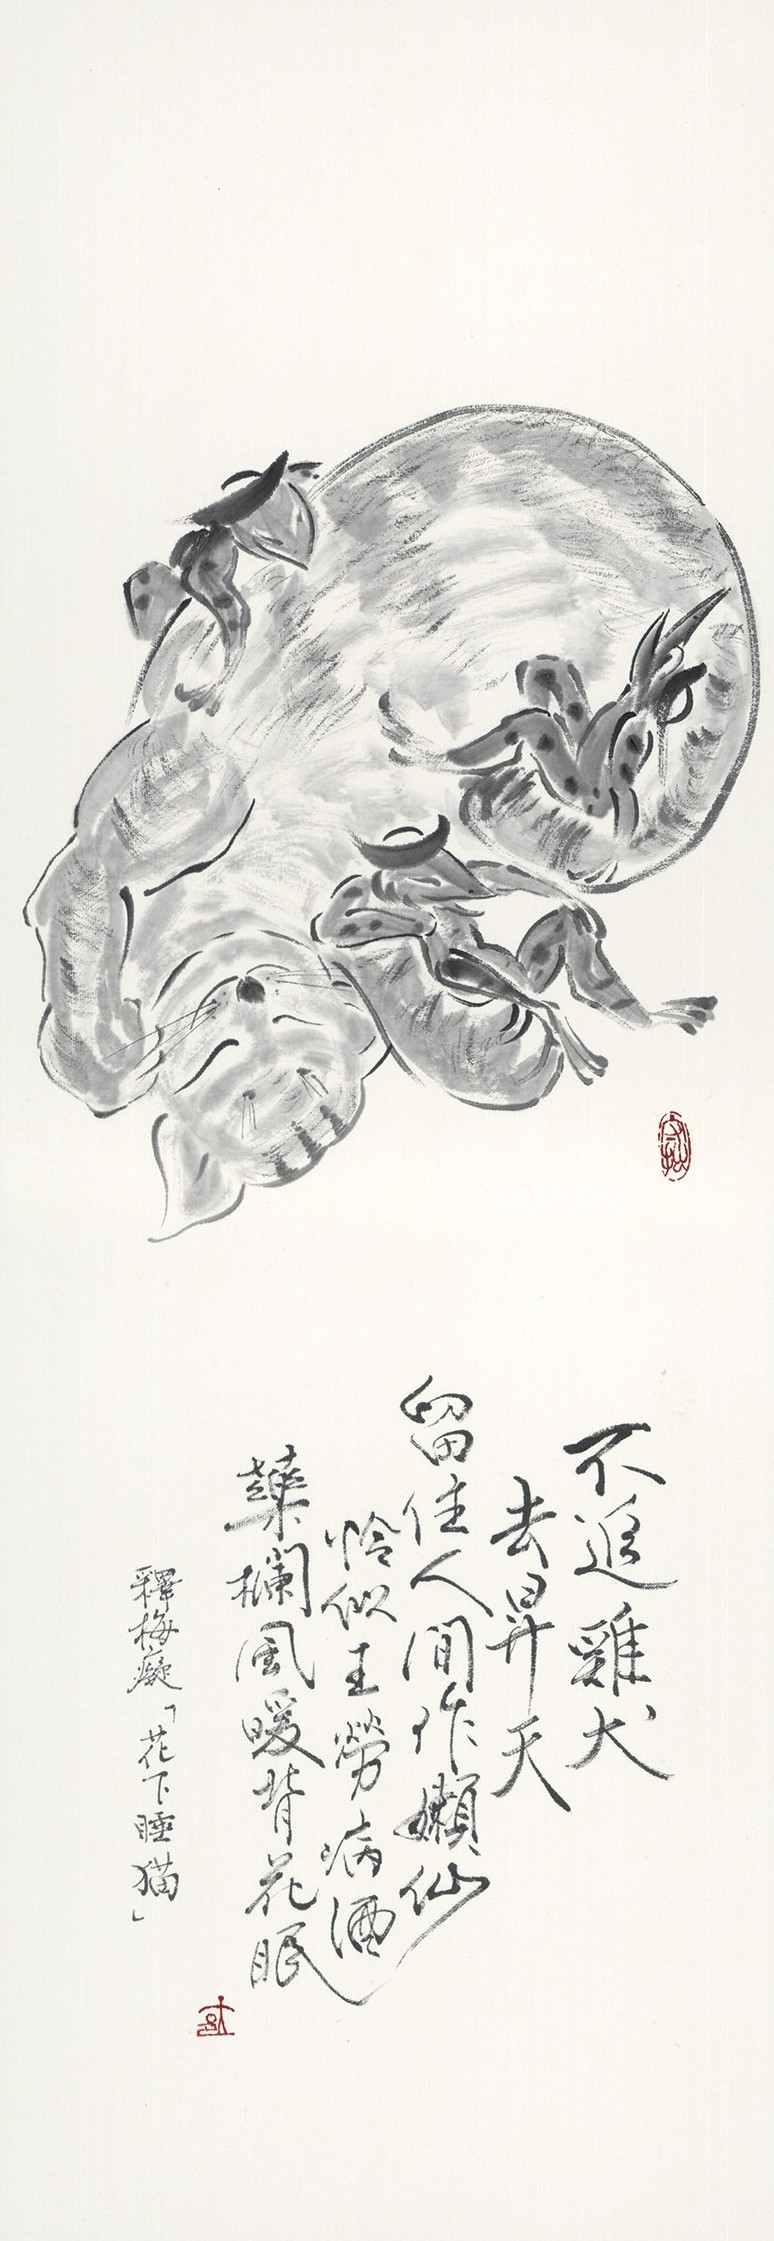 不追雞犬
去昇天
留住人間作嬾仙
恰似主勞病酒
藥欄風暖背花眠
釋梅癡「花下睡猫」